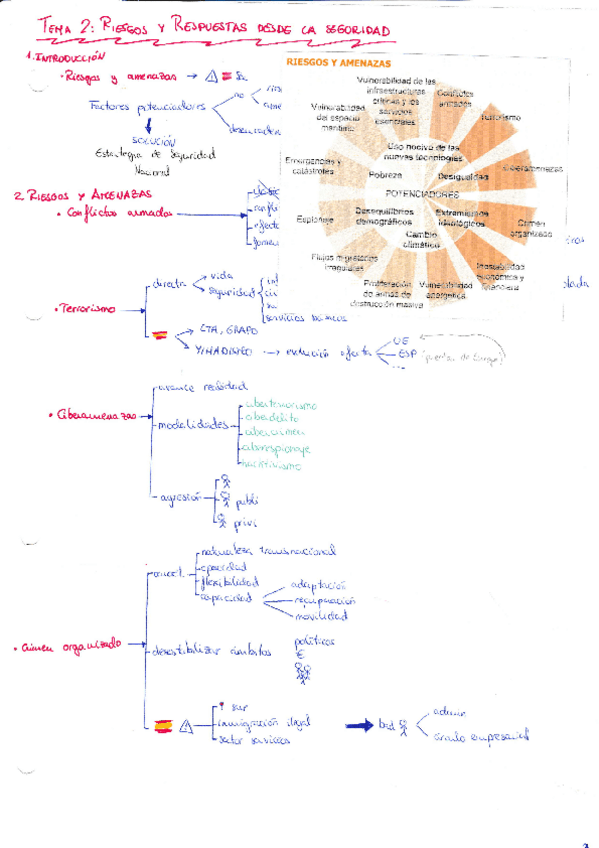 TEMA 2: RIESGOS Y RESPUESTAS DESDE LA SEGURIDAD
1. INTRODUCCIÓN
• Riesgos y amenazas
Factores potenciadores
no
SOLUCIÓN
Estrategia de Seguridad
Nacional
RIESGOS Y AMENAZAS
Vulnerabilidad de las
infraestructuras
críticas y los
servicios
esenciales
Conflictos
armados
Terrorismo
Ciberamenazas
Crimen
organizado
Inestabilidad
económica y
financiera
Vulnerabilidad
energética
Proliferación
de armas de
destrucción masiva
Flujos migratorios
irregulares
Espionaje
Emergencias y
catástrofes
Vulnerabilidad
del espacio
marítimo
Uso nocivo de las
nuevas tecnologías
Pobreza
Desigualdad
POTENCIADORES
Desequilibrios
demográficos
Extremismos
ideológicos
Cambio
climático
2. RIESGOS Y AMENAZAS
• Conflictos armados
• Terrorismo
directa
vida
seguridad
servicios básicos
ETA, GRAPO
YIHADISMO
evolución
UE
ESP
• Ciberamenazas
avance realidad
modalidades
ciberterrorismo
ciberdelito
cibercrimen
ciberespionaje
hacktivismo
agresión
publi
privi
• Crimen organizado
naturaleza transnacional
opacidad
flexibilidad
capacidad
adaptación
recuperación
movilidad
desestabilizar ámbitos
políticos
€
inmigración ilegal
sector servicios
círculo empresarial